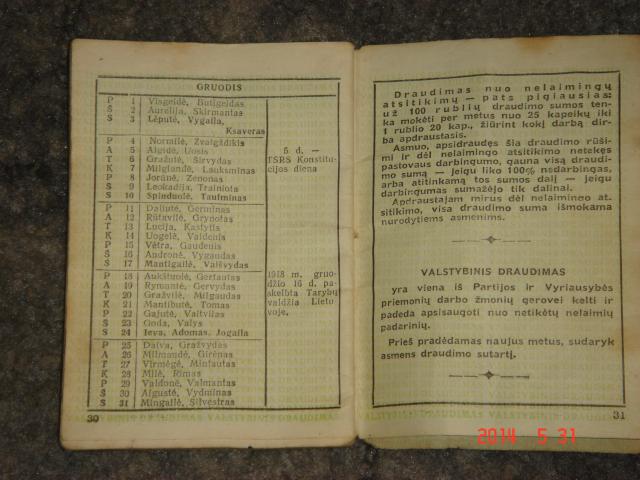 GRUODIS
P 1 Visgeidė, Butigeidas
S 2 Aurelija, Skirmantas
S 3 Lėputė, Vygaila,
Ksaveras
P 4 Normilė, Žvaigždikis
A 5 Algidė, Uosis
T 6 Gražutė, Širvydas
K 7 Milglandė, Lauksminas
P 8 Joranė, Zenonas
S 9 Leokadija, Trainiota
S 10 Spinduolė, Taufminas
5 d. —
TSRS Konstitu-
cijos diena
P 11 Daliutė, Germinas
A 12 Rūtavilė, Grynotas
T 13 Lucija, Kastytis
K 14 Uogelė, Valdenis
P 15 Vėtra, Gaudenis
S 16 Andronė, Vygaudas
S 17 Mantigailė, Vaišvydas
P 18 Aukštuolė, Gertautas
A 19 Rymantė, Gervydas
T 20 Gražvilė, Milgaudas
K 21 Mantibutė, Tomas
P 22 Gajutė, Vaitvilas
S 23 Goda, Valys
S 24 Ieva, Adomas, Jogaila
1918 m. gruo-
džio 16 d. pa-
skelbta Tarybų
valdžia Lietu-
voje.
P 25 Daiva, Gražvydas
A 26 Milmandė, Girėnas
T 27 Virmėgė, Mintautas
K 28 Milė, Rimas
P 29 Valdonė, Valmantas
S 30 Algustė, Vydminas
S 31 Mingailė, Silvestras
30
Draudimas nuo nelaimingų
atsitikimų — pats pigiausias:
už 100 rublių draudimo sumos ten-
ka mokėti per metus nuo 25 kapeikų iki
1 rublio 20 kap., žiūrint kokį darbą dir-
ba apdraustasis.
Asmuo, apsidraudęs šia draudimo rūši-
mi ir dėl nelaimingo atsitikimo netekęs
pastovaus darbingumo, gauna visą draudi-
mo sumą — jeigu liko 100% nedarbingas,
arba atitinkamą tos sumos dalį — jeigu
darbingumas sumažėjo tik dalinai.
Apdraustajam mirus dėl nelaimingo at-
sitikimo, visa draudimo suma išmokama
nurodytiems asmenims.
VALSTYBINIS DRAUDIMAS
yra viena iš Partijos ir Vyriausybės
priemonių darbo žmonių gerovei kelti ir
padeda apsisaugoti nuo netikėtų nelaimių
padarinių.
Prieš pradėdamas naujus metus, sudaryk
asmens draudimo sutartį.
31
2014 5 31